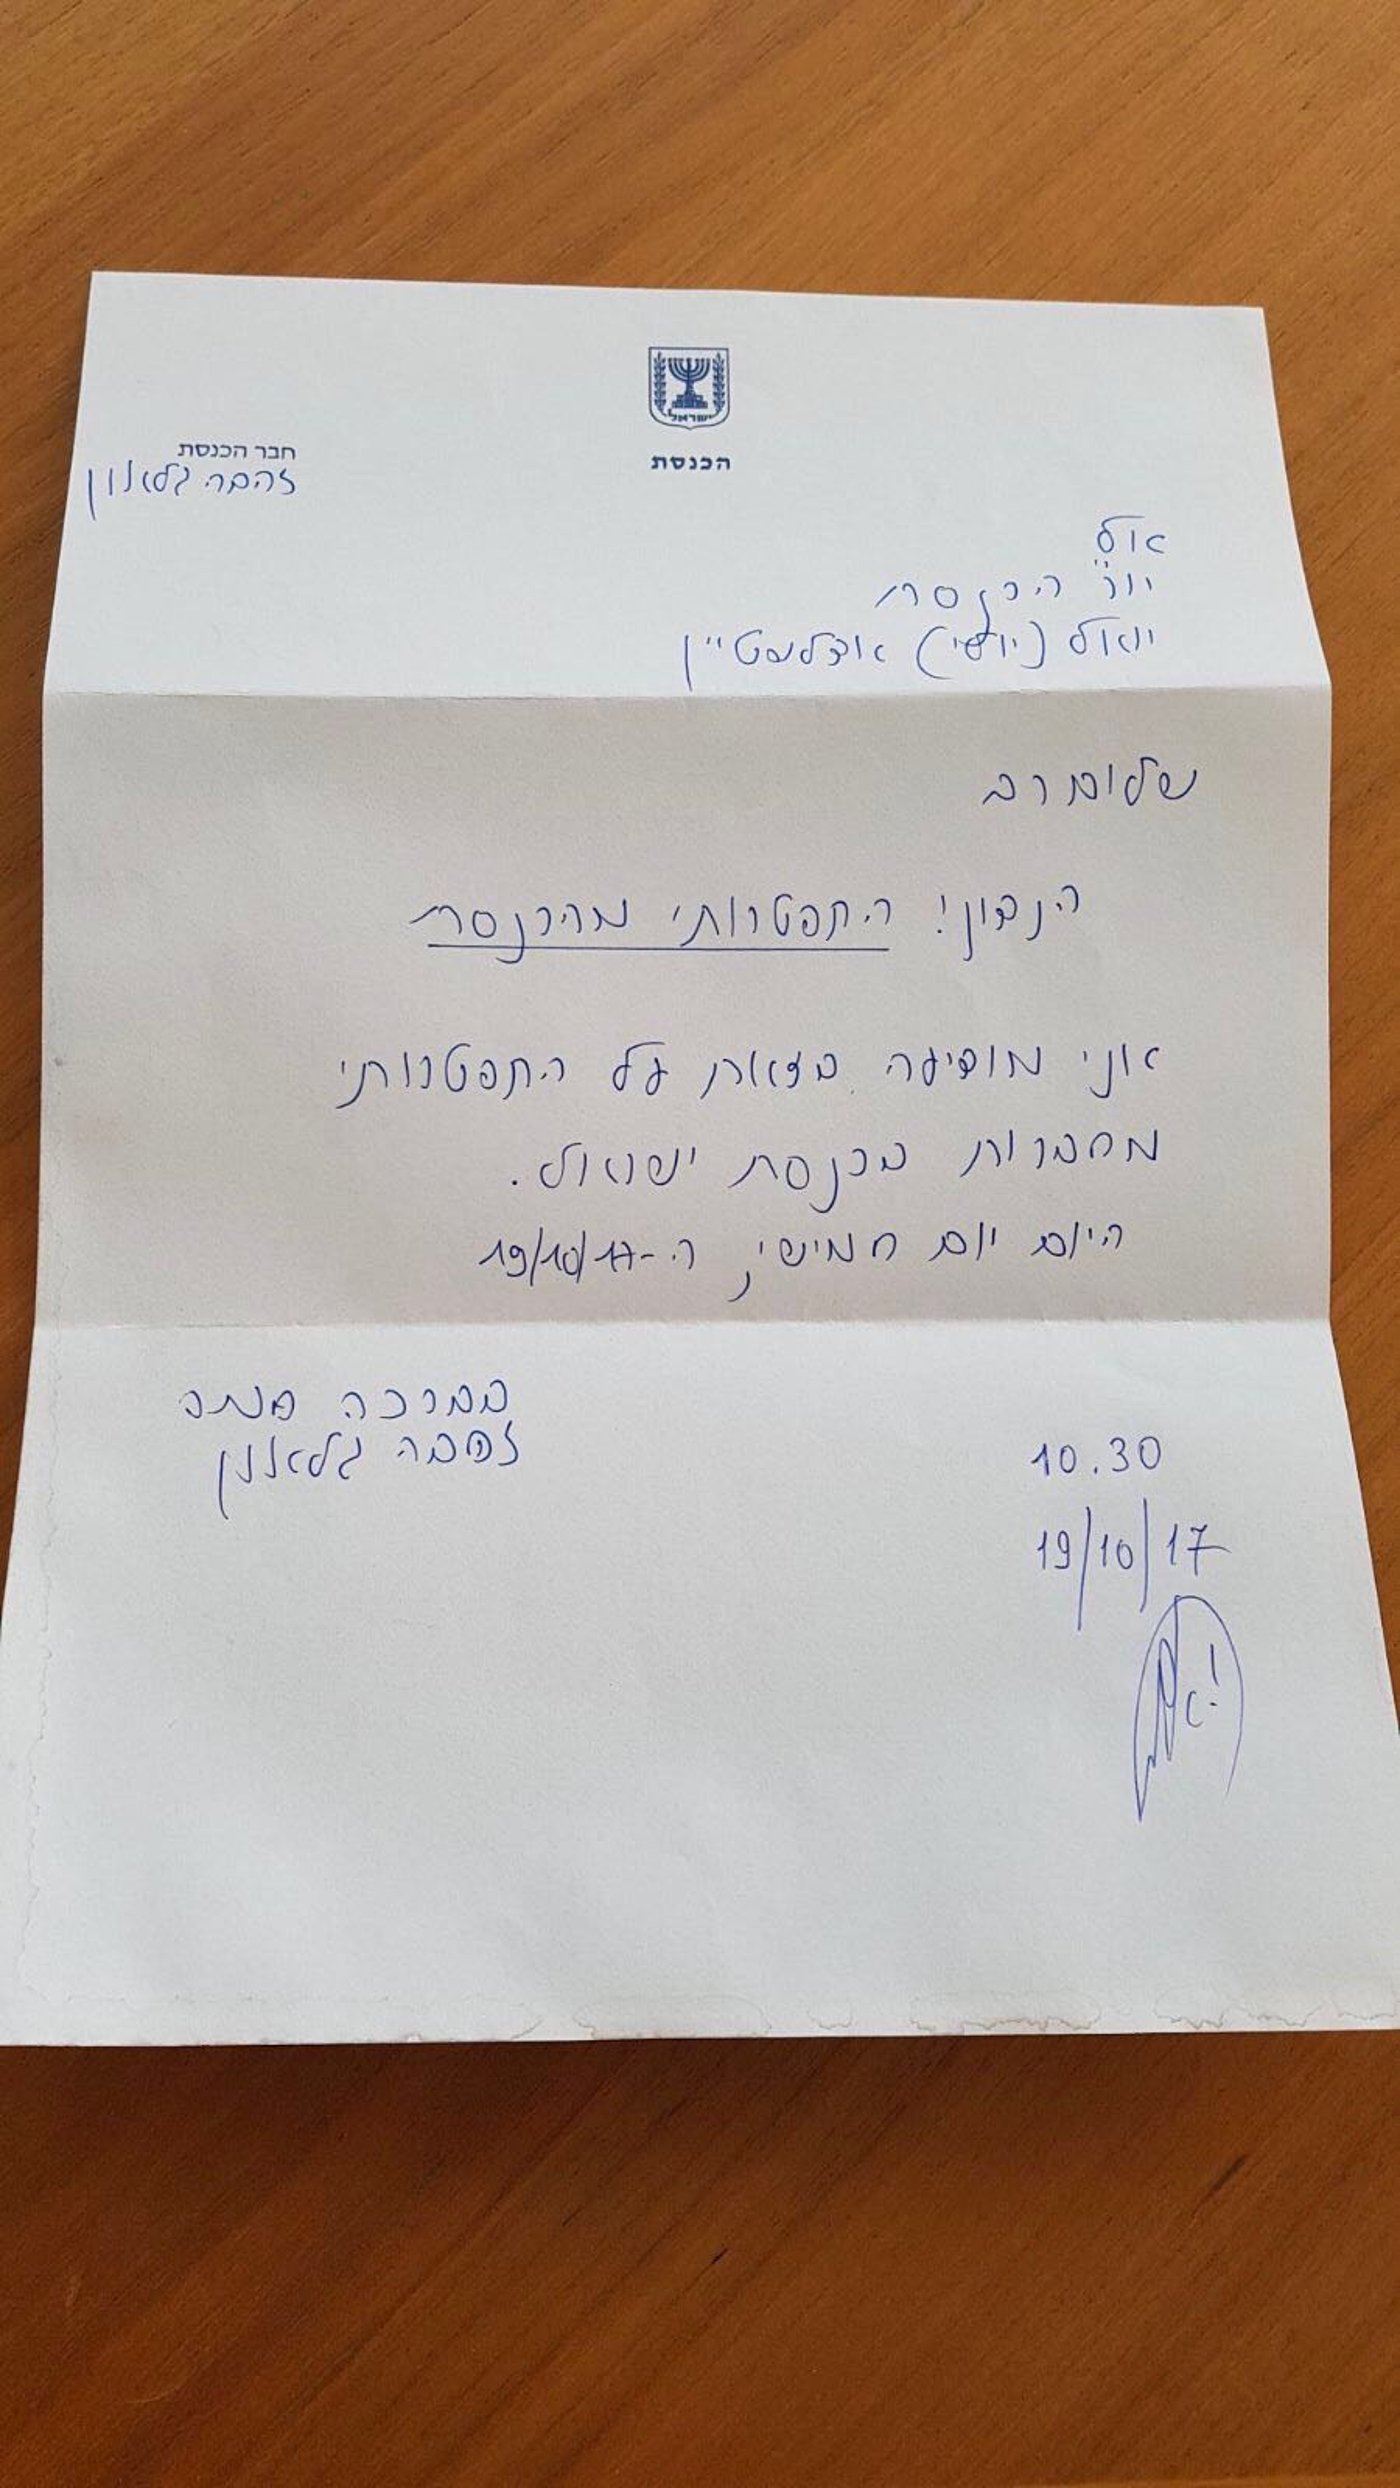 ישראל
הכנסת
חבר הכנסת
זהבה גלאון
אל
יו"ר הכנסת
יואל (יולי) אדלשטיין
שלום רב
הנדון: התפטרותי מהכנסת
אני מודיעה בזאת על התפטרותי
מחברות בכנסת ישראל.
היום יום חמישי, ה-19/10/17
בברכה
זהבה גלאון
10.30
19/10/17